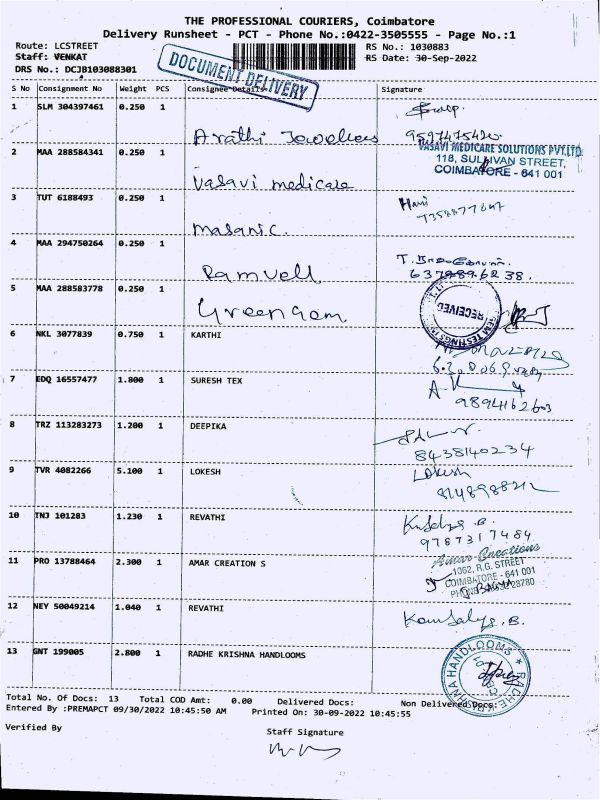 THE PROFESSIONAL COURIERS, Coimbatore
Delivery Runsheet - PCT - Phone No.:0422-3505555 - Page No.:1
Route: LCSTREET
RS No.: 1030883
Staff: VENKAT
RS Date: 30-Sep-2022
DRS No.: DCJB103088301
DOCUMENT DELIVERY
S No Consignment No Weight PCS Consignee Details Signature
1 SLM 304397461 0.250 1
Arathi Jewellers
2 MAA 288584341 0.250 1
VASAVI MEDICARE SOLUTIONS PVT.LTD
118, SULLIVAN STREET,
COIMBATORE - 641 001
Vasavi medicare
3 TUT 6188493 0.250 1
Hari
masanic.
4 MAA 294750264 0.250 1
Ramvell
5 MAA 288583778 0.250 1
RECEIVED
Greengem
6 NKL 3077839 0.750 1 KARTHI
7 EDQ 16557477 1.800 1 SURESH TEX
8 TRZ 113283273 1.200 1 DEEPIKA
8438140234
9 TVR 4082266 5.100 1 LOKESH
Lokesh
10 TNJ 101283 1.230 1 REVATHI
9787317484
11 PRO 13788464 2.300 1 AMAR CREATION S
Amar Creations
1062, R.G. STREET
COIMBATORE - 641 001
12 NEY 50049214 1.040 1 REVATHI
13 GNT 199005 2.800 1 RADHE KRISHNA HANDLOOMS
RADHE KRISHNA HANDLOOMS
Total No. Of Docs: 13 Total COD Amt: 0.00 Delivered Docs: Non Delivered Docs:
Entered By :PREMAPCT 09/30/2022 10:45:50 AM Printed On: 30-09-2022 10:45:55
Verified By Staff Signature